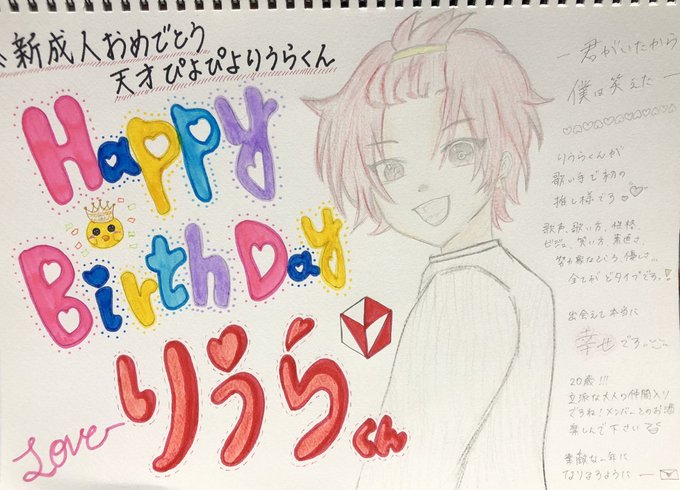 新成人おめでとう
天才ぴよぴよりうらくん
Happy
BirthDay
りうら
くん
Love
ー君がいたから
僕は笑えたー
りうらくんが
歌い手で初の
推し様です
歌声、歌い方、性格、
ビジュ、笑い方、素直さ、
努力家なところ、優しさ…
全てがどタイプです!
出会えて本当に
幸せです
20歳!!!
立派な大人の仲間入り
ですね!メンバーとのお酒
楽しんで下さい
素敵な一年に
なりますように